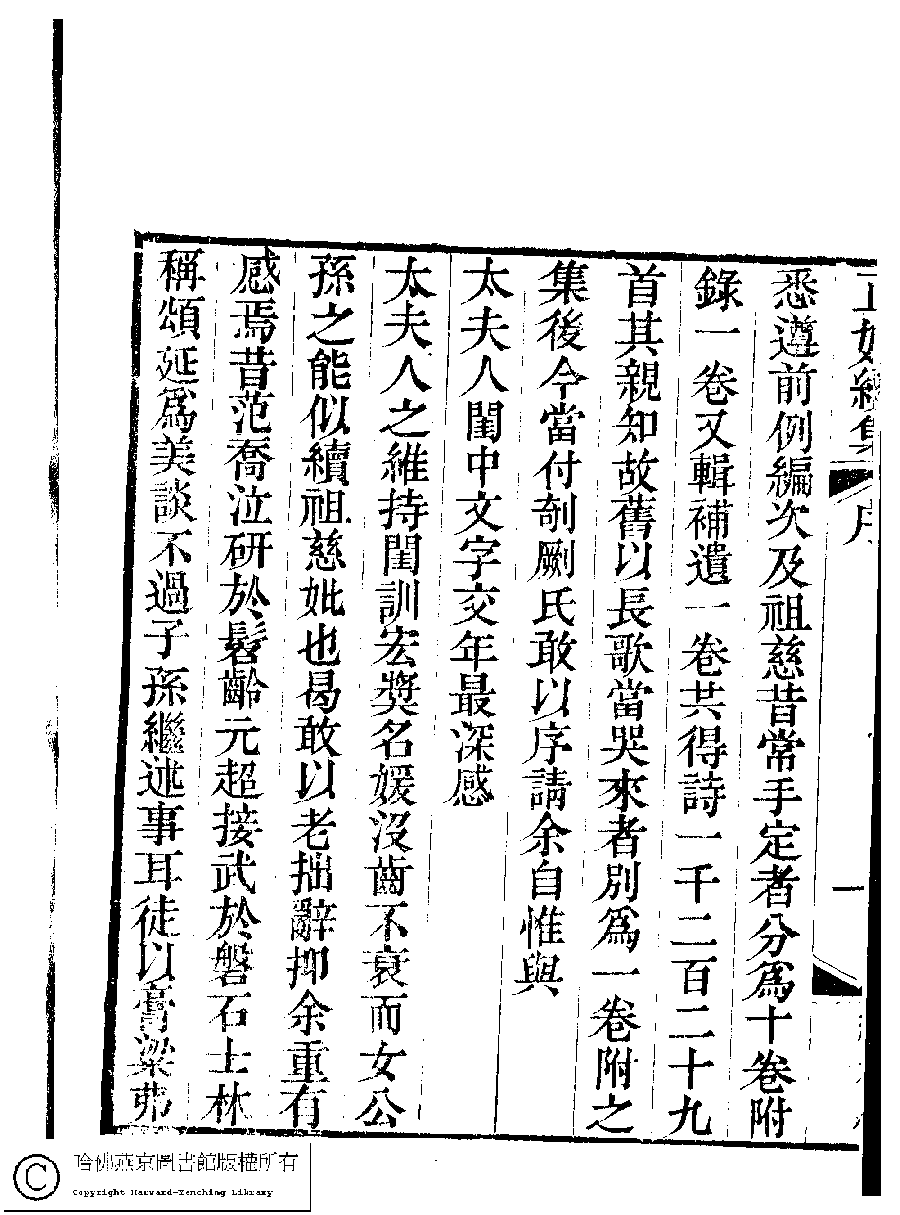 序
一
悉遵前例編次及祖慈昔常手定者分爲十卷附
錄一卷又輯補遺一卷共得詩一千二百二十九
首其親知故舊以長歌當哭來者別爲一卷附之
集後今當付剞劂氏敢以序請余自惟與
太夫人閨中文字交年最深感
太夫人之維持閨訓宏奬名媛沒齒不衰而女公
孫之能似續祖慈妣也曷敢以老拙辭抑余重有
感焉昔范喬泣研於髫齡元超接武於磐石士林
稱頌延爲美談不過子孫繼述事耳徒以膏粱弗
哈佛燕京圖書館版權所有
Copyright Harvard-Yenching Library